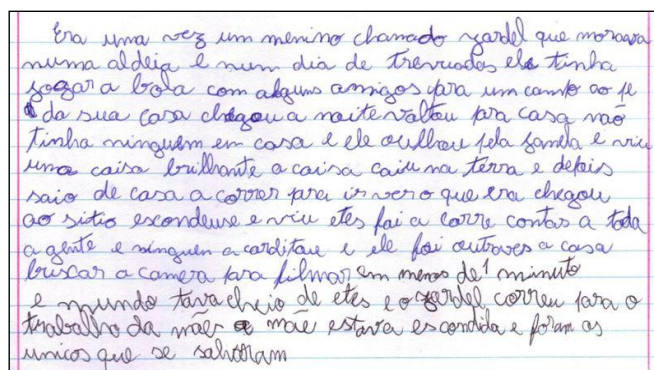 Era uma vez um menino chamado zardel que morava
numa aldeia e num dia de trevuadas ele tinha
jogar a bola com alguns amigos para um campo ao pe
da sua casa chegou a noite valtou pra casa não
tinha ninguém em casa e ele oulhou pela janela e viu
uma caisa brilhante a caisa caiu na terra e depois
saio de casa a correr pra ir ver o que era chegou
ao sitio escondeuse e viu etes foi a corre contar a toda
a gente e ninguen a carditou e ele foi outraves a casa
buscar a camera pra filmar em menos de 1 minuto
e mundo tava cheio de etes e o zardel correu para o
trabalho da mãe a mãe estava escondida e foram os
unicos que se salvaram